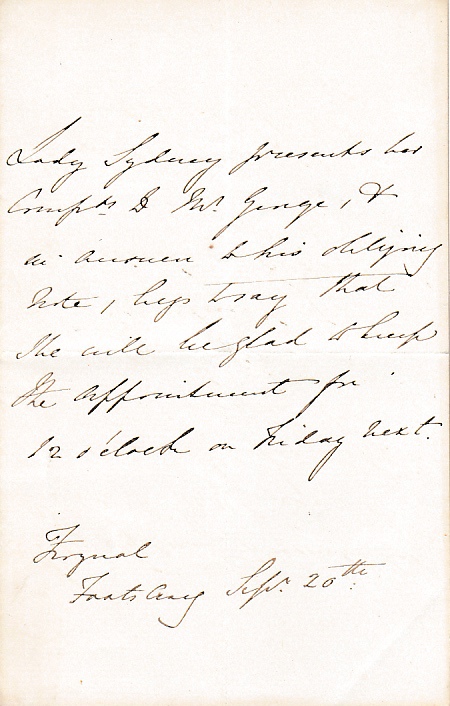 Lady Sydney presents her
Compts to Mr. George, &
in answer to his obliging
Note, begs to say that
She will be glad to keep
the appointment for
12 o'clock on Friday next.
Frognal
Foots Cray Sepr. 20th